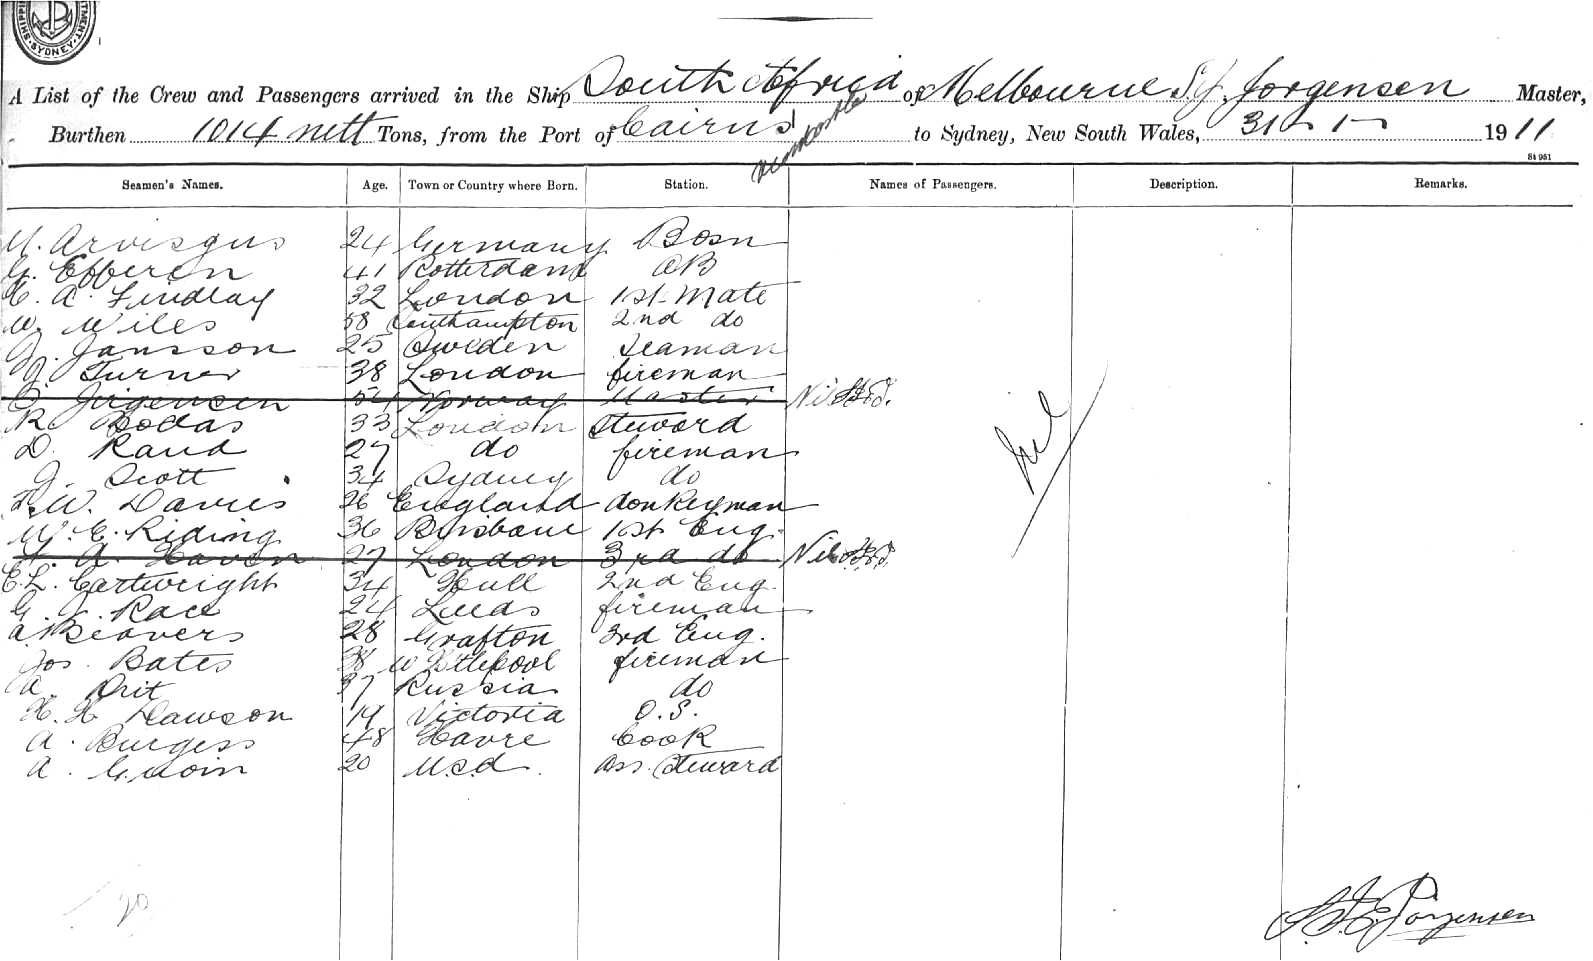 SHIPPING
SYDNEY.
A List of the Crew and Passengers arrived in the Ship South Africa of Melbourne S. J. Jorgensen Master,
Burthen 1014 nett Tons, from the Port of Cairns to Sydney, New South Wales, 31 - 1 - 1911
St 951
Seamen's Names. Age. Town or Country where Born. Station. Names of Passengers. Description. Remarks.
M. Arvisgus 24 Germany Bosn
G. Efferen 41 Rotterdam AB
C. A. Findlay 32 London 1st Mate
W. Wiles 58 Southampton 2nd do
J. Jansson 25 Sweden Seaman
J. Turner 38 London fireman
Jirgensen 54 Norway Master Nil
R. Bodas 33 London Steward
D. Rand 27 do fireman
J. Scott 34 Sydney do
F. W. Davies 26 England donkeyman
W. E. Riding 36 Brisbane 1st Eng.
A. Haven 27 London 3rd do Nil
E. L. Cartwright 34 Hull 2nd Eng.
G. J. Race 24 Leeds fireman
A. Beavers 28 Grafton 3rd Eng.
Jos. Bates 38 W Htlepool fireman
A. Prit 37 Russia do
H. H Dawson 19 Victoria O.S.
A. Burgess 48 Havre Cook
A. 20 U.S.A. Ass. Steward
Nil
20
Jorgensen